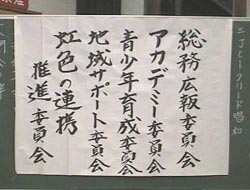 総務広報委員会
アカデミー委員会
青少年育成委員会
地域サポート委員会
虹色の連携
推進委員会
三丁ヒークリード唱和